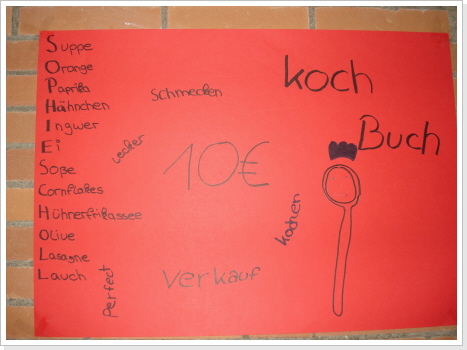 Suppe
Orange
Paprika
Hähnchen
Ingwer
Ei
Soße
Cornflakes
Hührerfrikassee
Olive
Lasagne
Lauch
schmecken
lecker
10€
perfect
Verkauf
kochen
koch
Buch